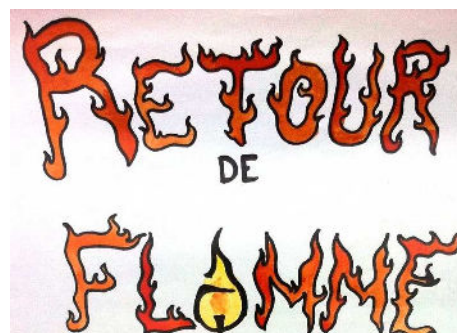 RETOUR
DE
FLAMME